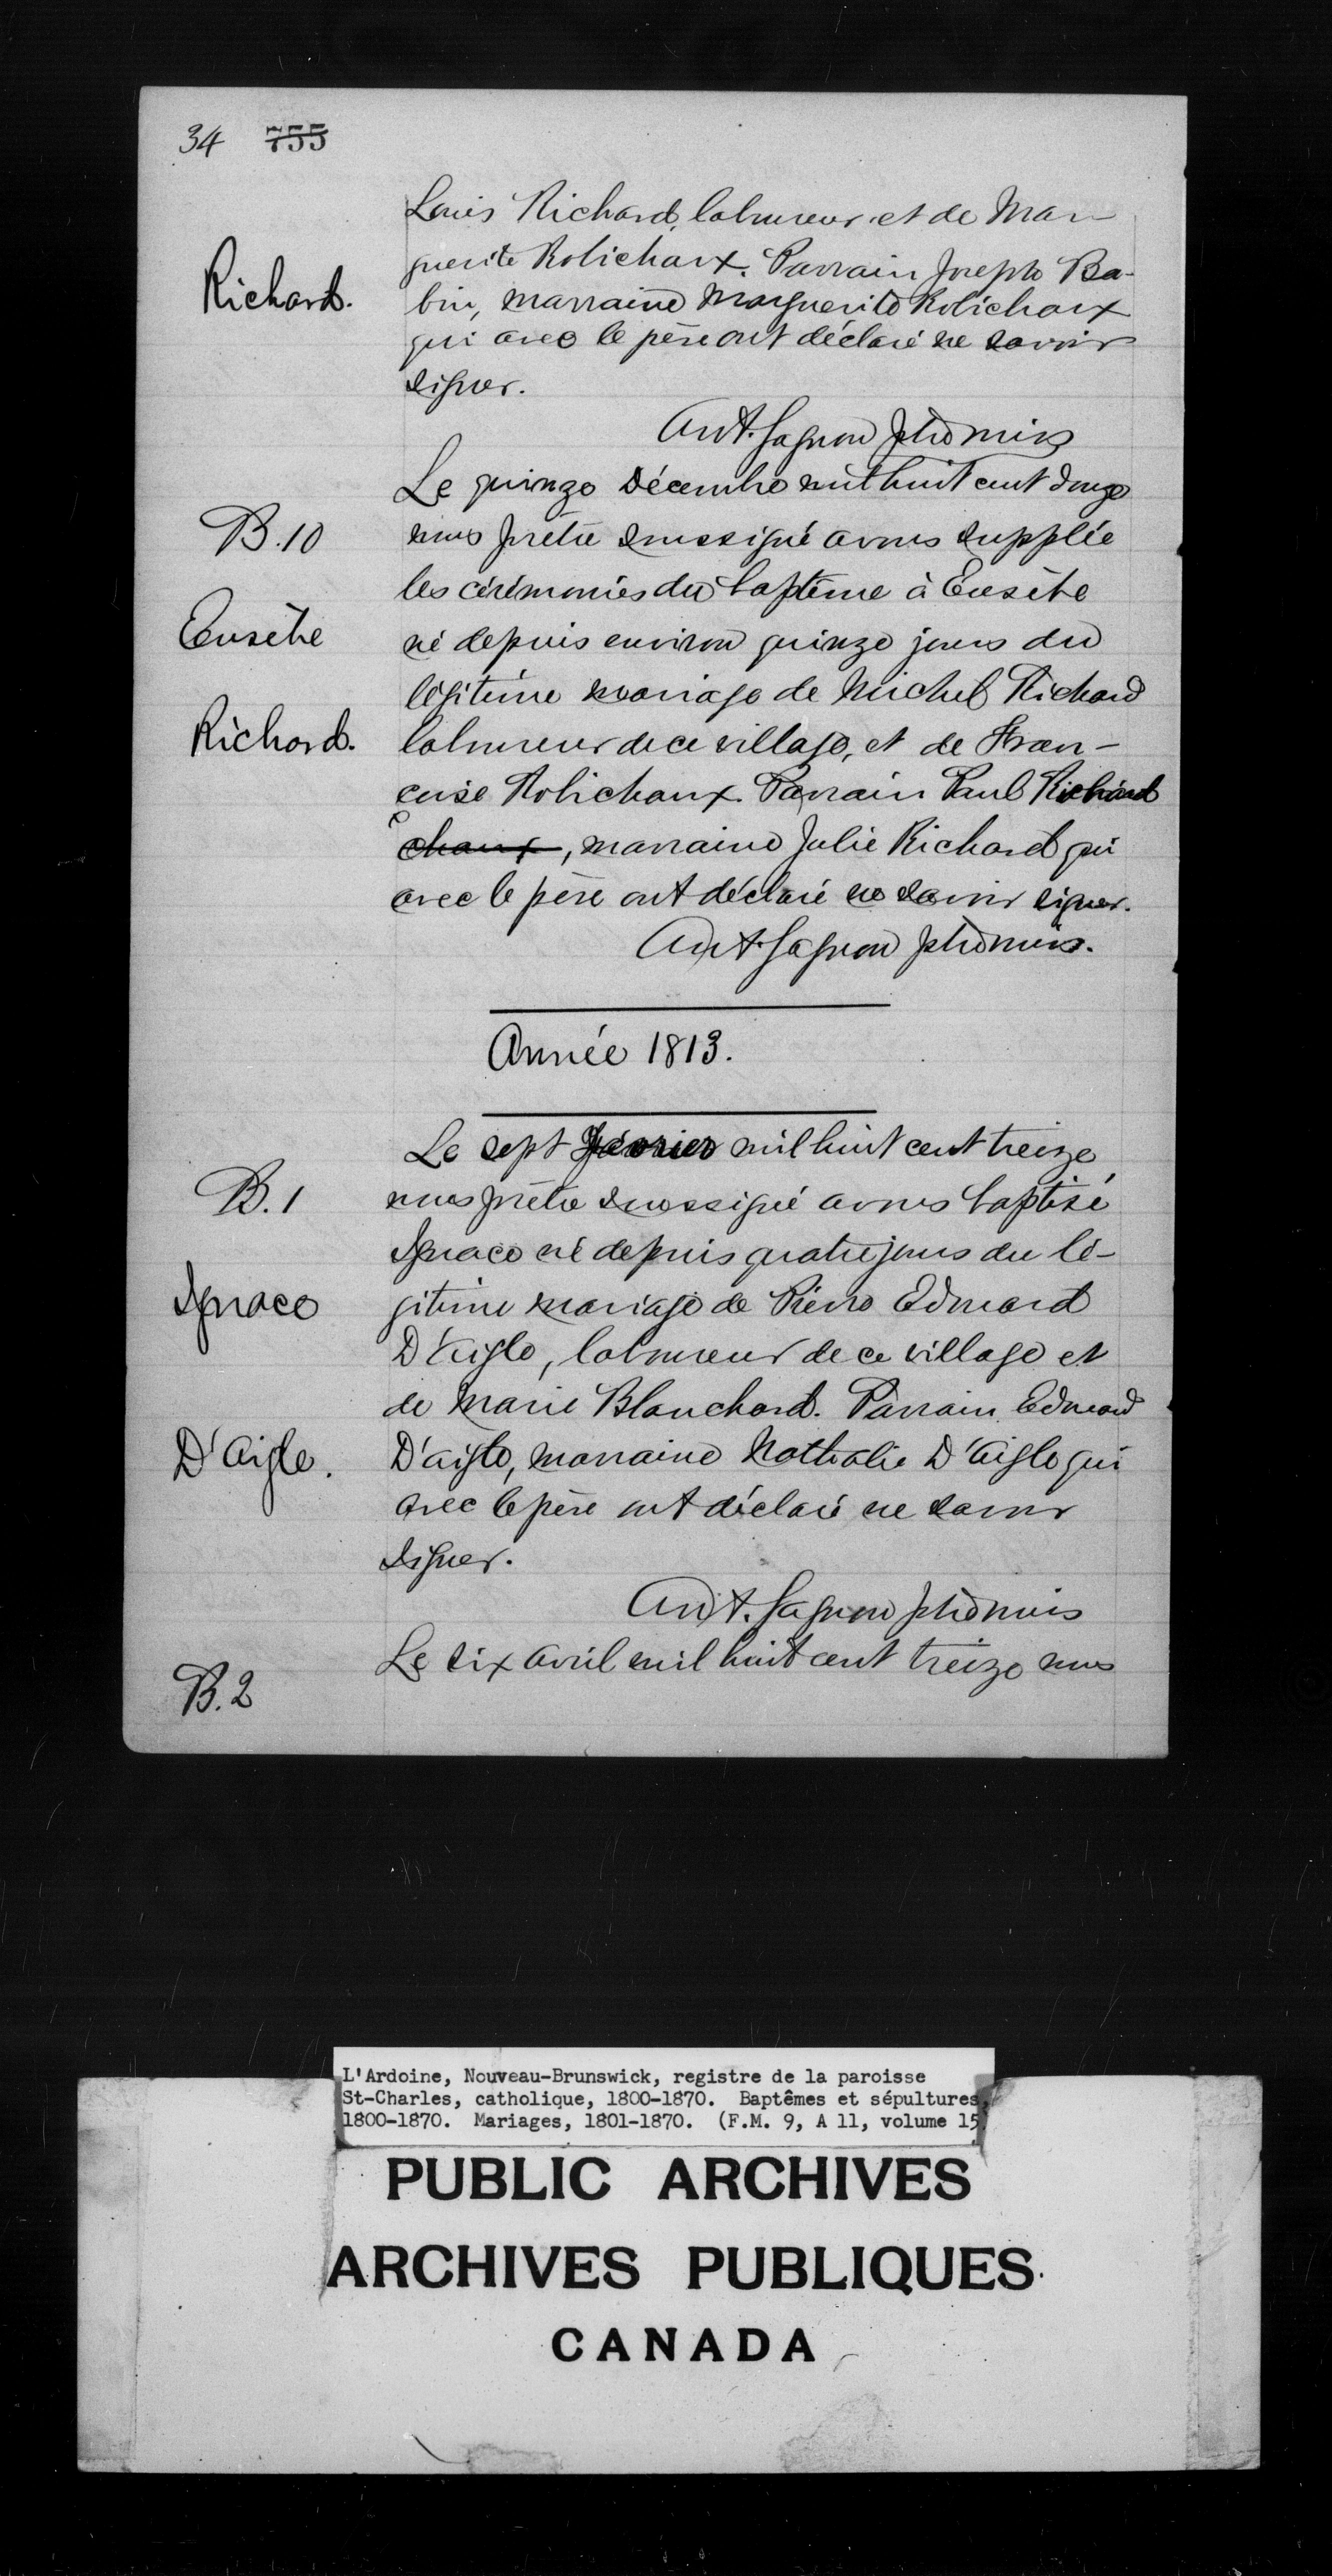 34 755
Louis Richard, laboureur et de Mar-
guerite Robichaux. Parrain Joseph Ba-
Richard.
bin, marraine Marguerite Robichaux
qui avec le père ont déclaré ne savoir
signer.
Ant. Gagnon ptre miss
Le quinze Décembre mil huit cent douze
B.10
nous prêtre soussigné avons supplée
les cérémonies du baptême à Eusèbe
Eusèbe
né depuis environ quinze jours du
légitime mariage de Michel Richard
Richard.
laboureur de ce village, et de Fran-
çoise Robichaux. Parrain Paul Richard
chaux, marraine Julie Richard qui
avec le père ont déclaré ne savoir signer.
Ant. Gagnon ptre miss.
Année 1813.
Le sept février mil huit cent treize
B.1
nous prêtre soussigné avons baptisé
Ignace né depuis quatre jours du lé-
Ignace
gitime mariage de Pierre Edouard
D'aigle, laboureur de ce village et
de Marie Blanchard. Parrain Edouard
D'Aigle.
D'aigle, marraine Nathalie D'Aigle qui
avec le père ont déclaré ne savoir
signer.
Ant. Gagnon ptre miss
Le six avril mil huit cent treize nous
B.2
L'Ardoine, Nouveau-Brunswick, registre de la paroisse
St-Charles, catholique, 1800-1870. Baptêmes et sépultures,
1800-1870. Mariages, 1801-1870. (F.M. 9, A 11, volume 15)
PUBLIC ARCHIVES
ARCHIVES PUBLIQUES
CANADA